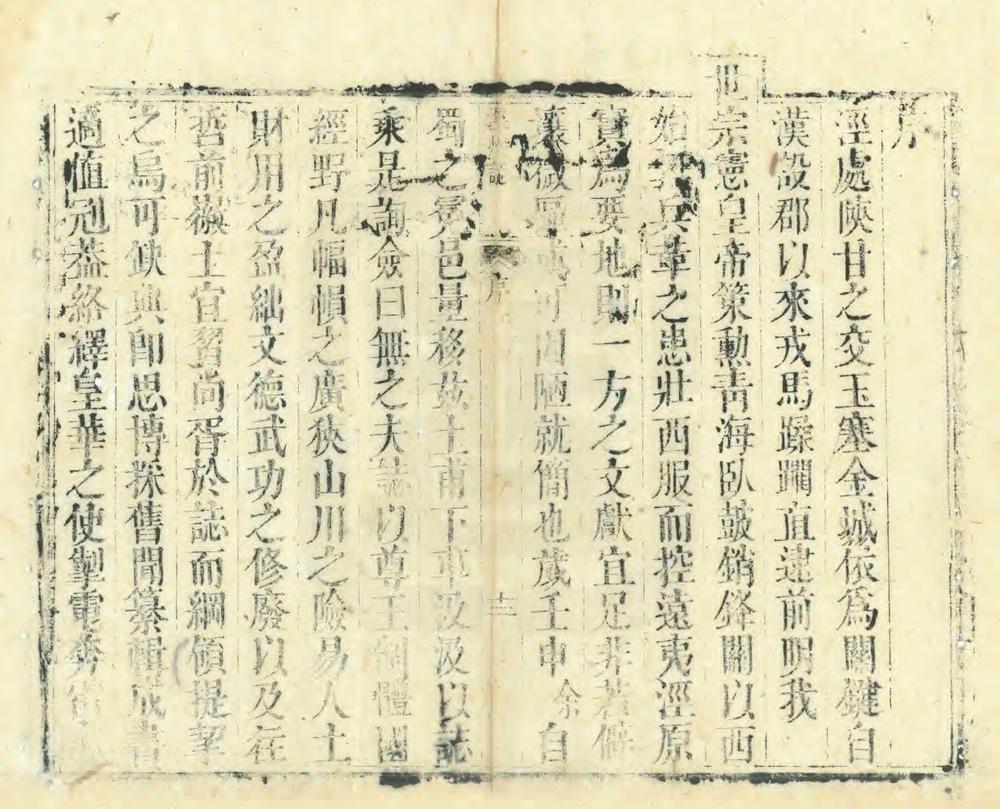 序
涇處陝甘之交玉塞金城依為關鍵自
漢設郡以來戎馬蹂躪直逮前明我
世宗憲皇帝策勲青海臥鼓銷鋒關以西
始無兵革之患壯西服而控遠夷涇原
實為要地則一方之文獻宜足非若僻
壤可因陋就簡也歲壬申余自
序
十二
蜀之冕邑量移兹土甫下車汲汲以誌
乘是詢僉曰無之夫誌以尊王制體國
經野凡幅幀之廣狹山川之險易人土
財用之盈絀文德武功之修廢以及在
哲前徽土宜習尚胥於誌而綱領提挈
之烏可缺典即思博採舊聞纂輯成書
適值冠蓋絡繹皇華之使掣電奔